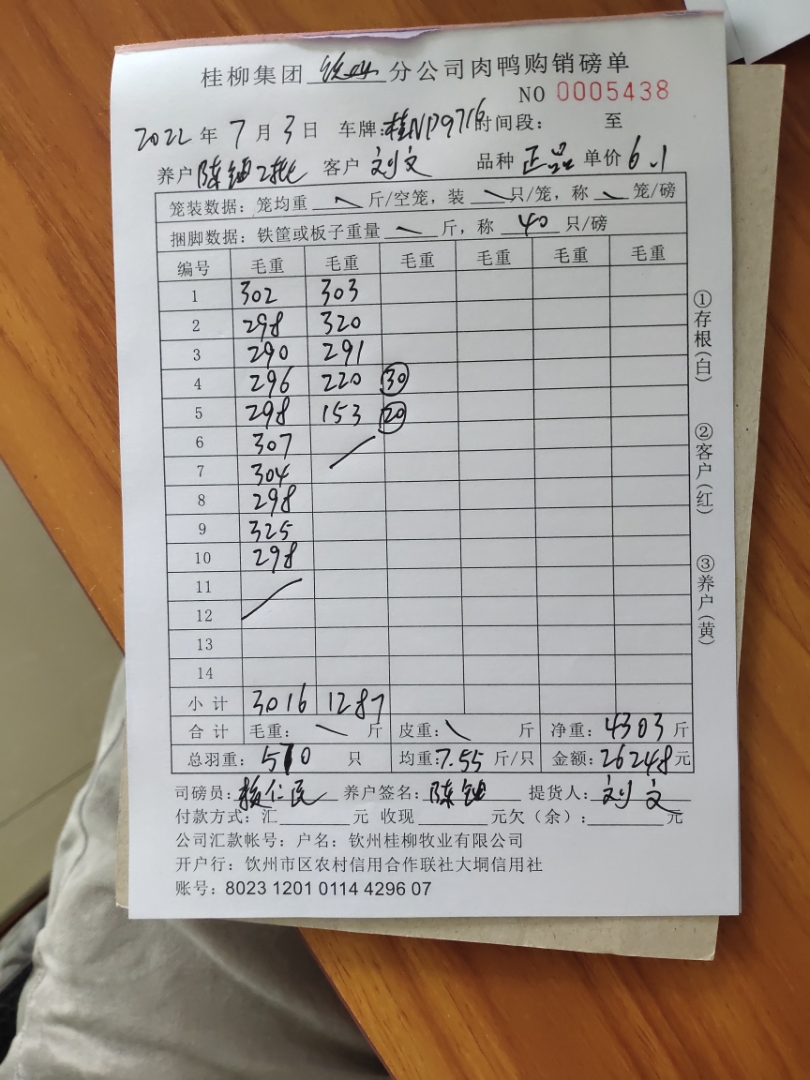 桂柳集团 钦州 分公司肉鸭购销磅单
NO 0005438
2022 年 7 月 3 日 车牌:桂NP9716 时间段: 至
养户 陈 2批 客户 刘文 品种 正品 单价 6.1
笼装数据: 笼均重 \ 斤/空笼, 装 \ 只/笼, 称 \ 笼/磅
捆脚数据: 铁筐或板子重量 \ 斤, 称 40 只/磅
编号 毛重 毛重 毛重 毛重 毛重 毛重
1 302 303
2 298 320
3 290 291
4 296 220 30
5 298 153 20
6 307
7 304
8 298
9 325
10 298
11
12
13
14
小计 3016 1287
合计 毛重: \ 斤 皮重: \ 斤 净重: 4303 斤
总羽重: 570 只 均重: 7.55 斤/只 金额: 26248 元
司磅员: 仁民 养户签名: 陈 提货人: 刘文
付款方式: 汇 元 收现 元欠(余): 元
公司汇款帐号: 户名: 钦州桂柳牧业有限公司
开户行: 钦州市区农村信用合作联社大垌信用社
账号: 8023 1201 0114 4296 07
①存根(白)
②客户(红)
③养户(黄)